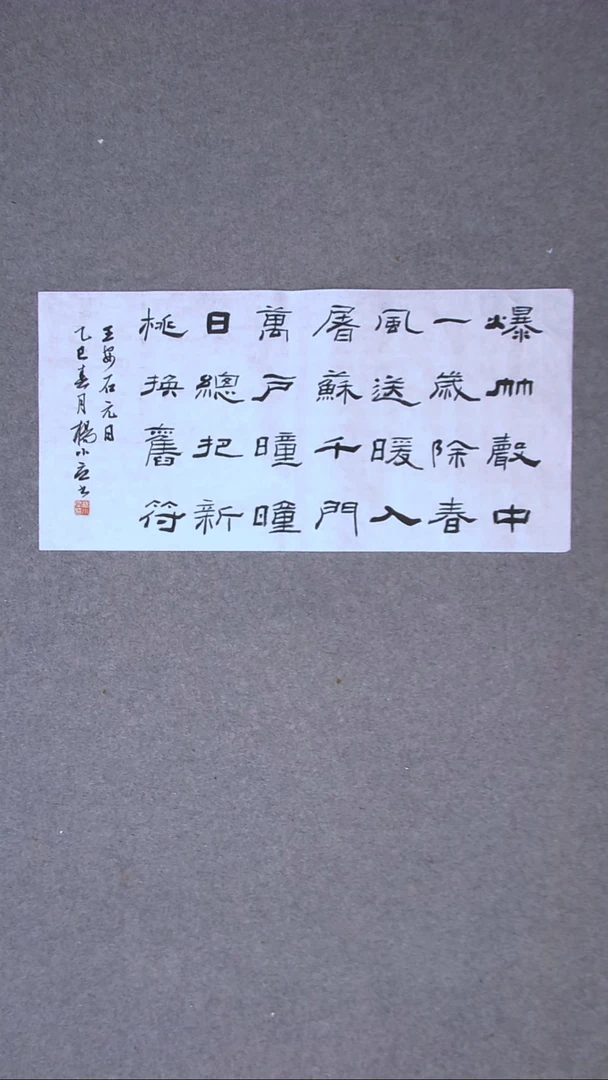 爆竹聲中
一歲除春
風送暖入
屠蘇千門
萬戶曈曈
日總把新
桃換舊符
王安石元日
乙巳春月楊小